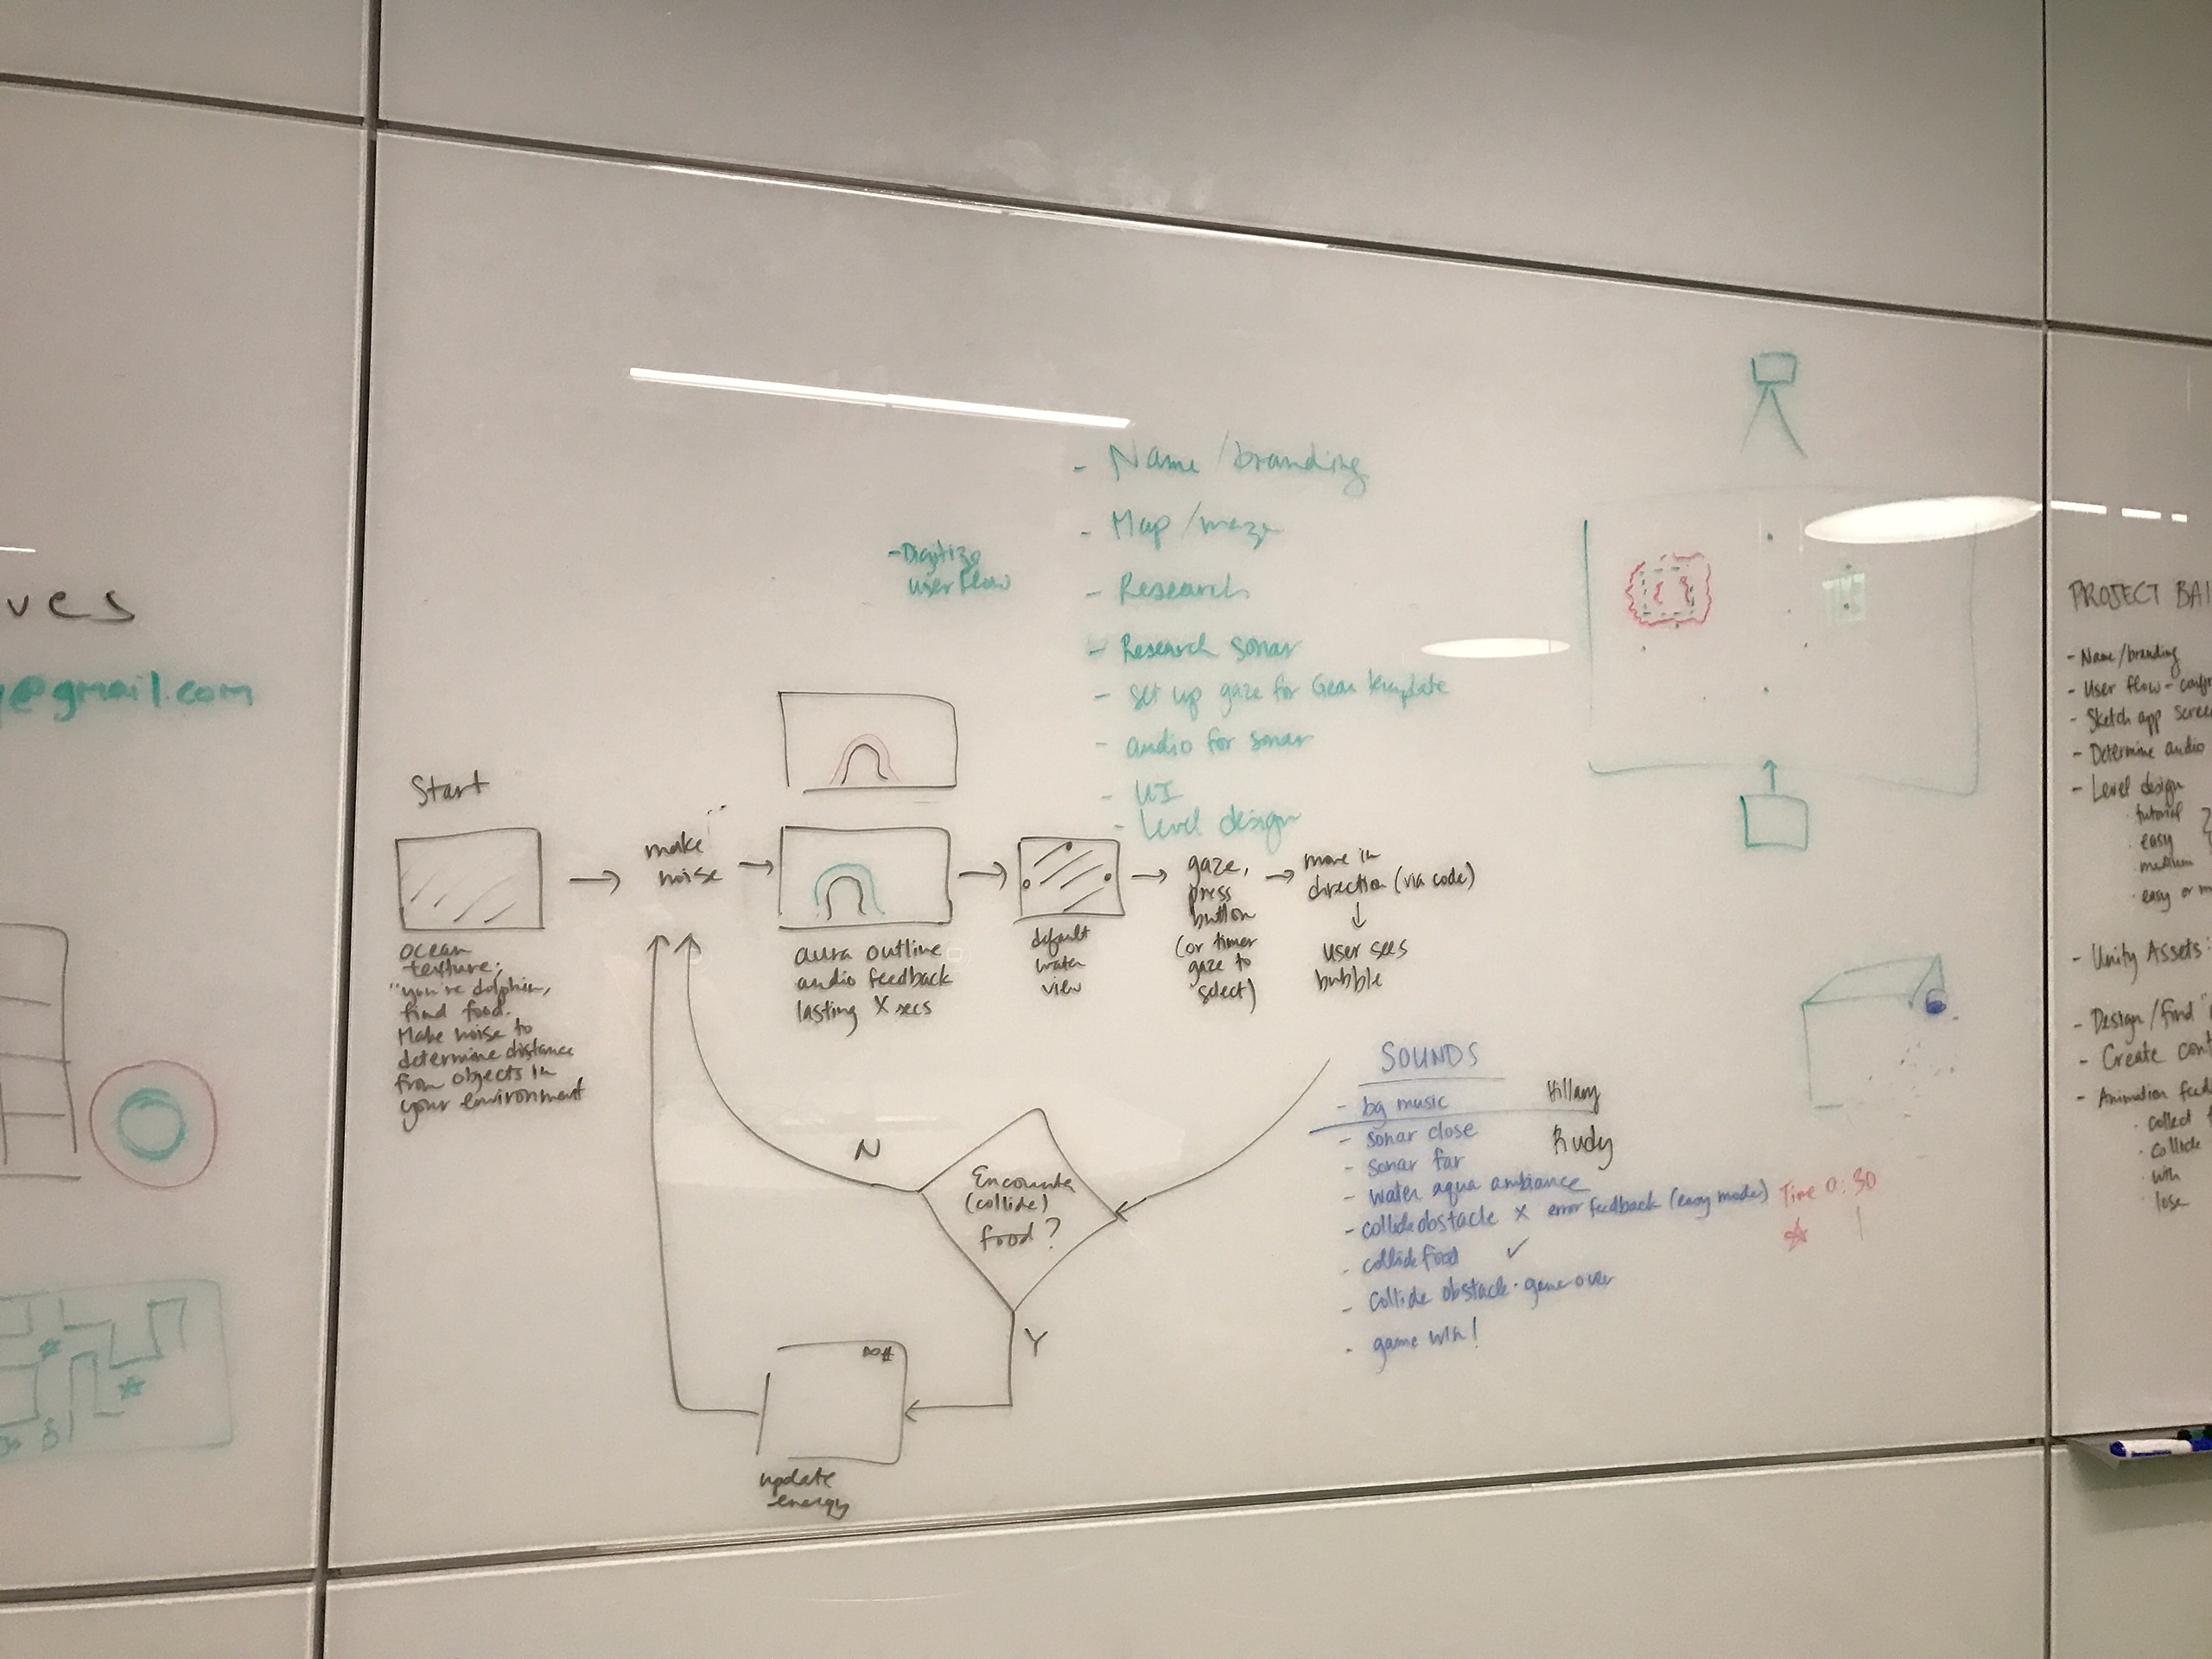 ves
@gmail.com
- Name/branding
- Map/maze
- Digitize
user flow
- Research
- Research sonar
- set up gaze for Gear template
- audio for sonar
- UI
- Level design
Start
ocean
texture;
"you're dolphin,
find food.
Make noise to
determine distance
from objects in
your environment
make
noise
aura outline
audio feedback
lasting X secs
default
water
view
gaze,
press
button
(or timer
gaze to
select)
move in
direction (via code)
user sees
bubble
Encounter
(collide)
food?
N
Y
update
energy
SOUNDS
- bg music Hillary
- sonar close Rudy
- sonar far
- water aqua ambiance
- collide obstacle x error feedback (easy mode)
- collide food ✓
- collide obstacle · game over
- game win!
Time 0:30
PROJECT BAI
- Name/branding
- User flow - conf
- Sketch app scree
- Determine audio
- Level design
· tutorial
· easy
medium
· easy or m
- Unity Assets:
- Design/find
- Create cont
- Animation feed
· collect
· collide
· win
lose